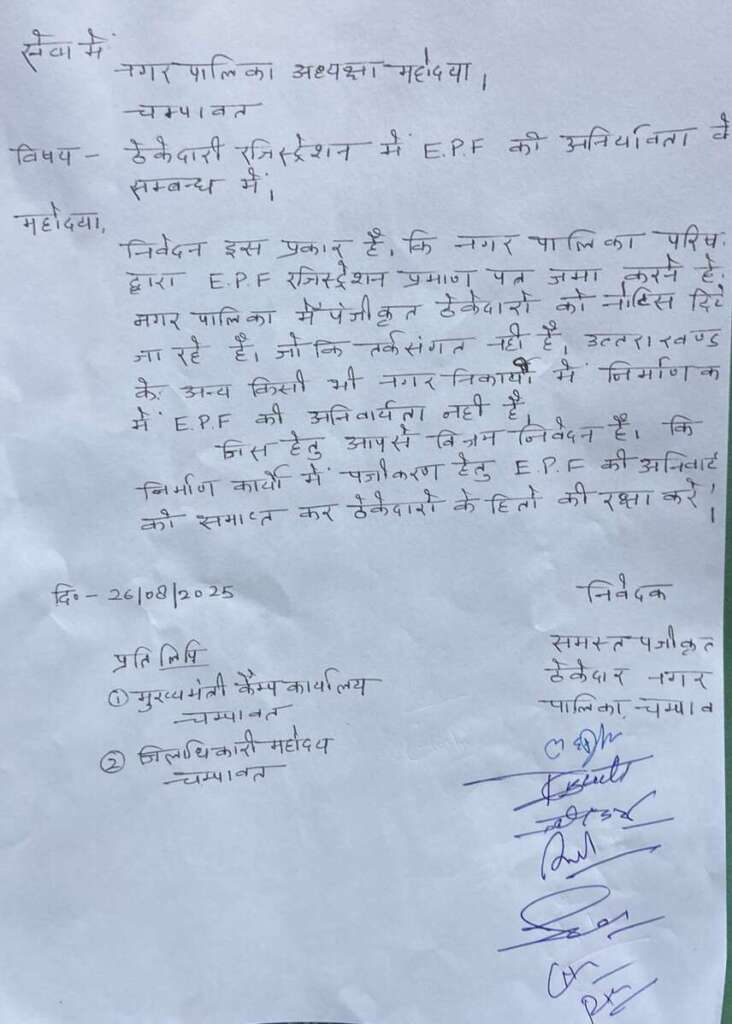 सेवा में
नगर पालिका अध्यक्षा महोदया।
चम्पावत
विषय - ठेकेदारी रजिस्ट्रेशन में E.P.F की अनिर्यावता के
सम्बन्ध में।
महोदया,
निवेदन इस प्रकार है, कि नगर पालिका परिष
द्वारा E.P.F रजिस्ट्रेशन प्रमाण पत्र जमा करने हे
नगर पालिका में पंजीकृत ठेकेदारो को नोटिस दिये
जा रहे है। जो कि तर्कसंगत नही है, उत्तराखण्ड
के अन्य किसी भी नगर निकायों में निर्माण क
में E.P.F की अनिवार्यता नही है,
जिस हेतु आपसे विनम्र निवेदन है। कि
निर्माण कार्यो में पंजीकरण हेतु E.P.F की अनिवार्य
को समाप्त कर ठेकेदारो के हितो की रक्षा करें।
दि० - 26/08/2025
निवेदक
समस्त पंजीकृत
ठेकेदार नगर
पालिका, चम्पाव
प्रतिलिपि
① मुख्यमंत्री कैम्प कार्यालय
चम्पावत
② जिलाधिकारी महोदय
चम्पावत